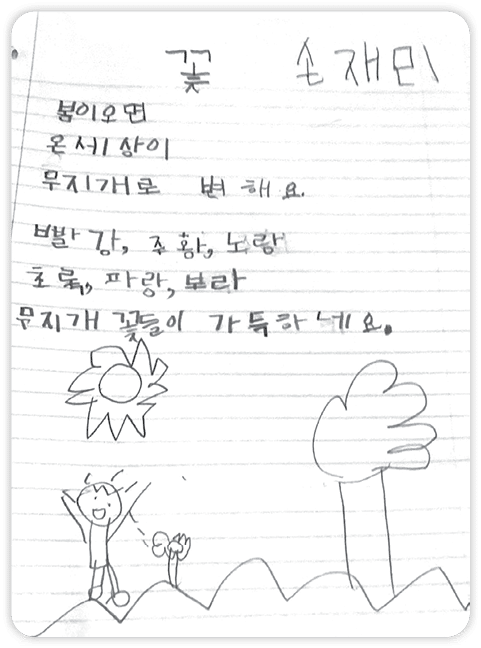 꽃 손재민
봄이오면
온세상이
무지개로 변해요.
빨강, 주황, 노랑
초록, 파랑, 보라
무지개 꽃들이 가득하네요.